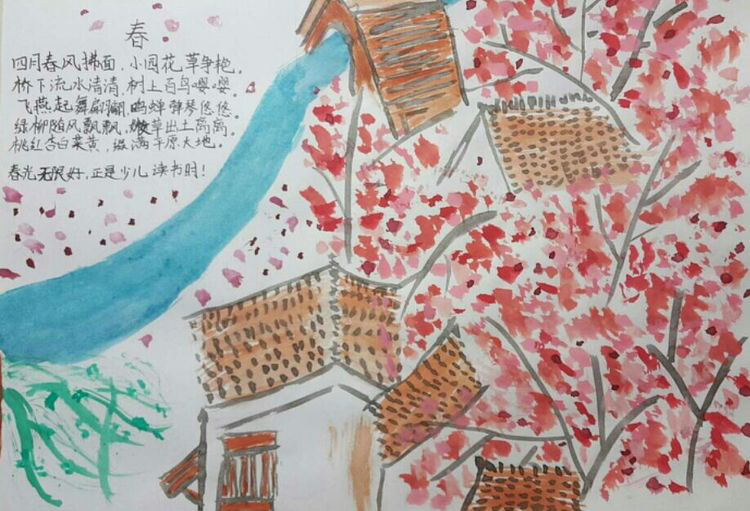 春
四月春风拂面，小园花草争艳。
桥下流水清清，树上百鸟嘤嘤。
飞燕起舞翩翩，鸣蝉弹琴悠悠。
绿柳随风飘飘，嫩草出土离离。
桃红杏白菜黄，缀满平原大地。
春光无限好，正是少儿读书时！